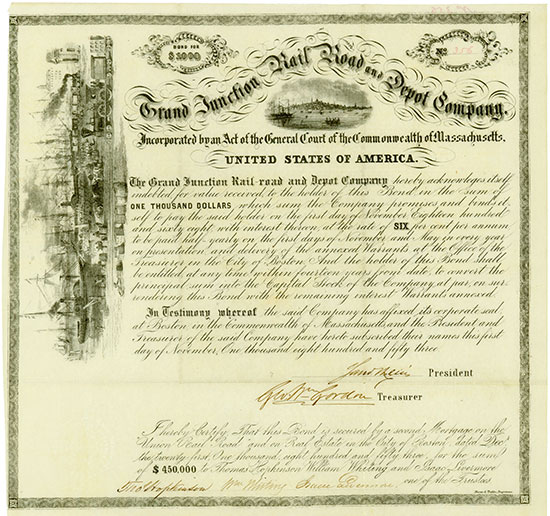 BOND FOR
$1000
No
Grand Junction Rail Road and Depot Company.
Incorporated by an Act of the General Court of the Commonwealth of Massachusetts.
UNITED STATES OF AMERICA.
The Grand Junction Rail-road and Depot Company hereby acknowledges itself
indebted for value received to the holder of this Bond in the sum of
ONE THOUSAND DOLLARS which sum the Company promises and binds it
self to pay the said holder on the first day of November Eighteen hundred
and sixty eight with interest thereon, at the rate of SIX per cent per annum
to be paid half-yearly on the first days of November and May in every year
on presentation and delivery of the annexed Warrants at the Office of the
Treasurer in the City of Boston. And the holder of this Bond shall
be entitled at any time within fourteen years from date, to convert the
principal sum into the Capital Stock of the Company at par, on sur-
rendering this Bond with the remaining interest Warrants annexed.
In Testimony whereof the said Company has affixed its corporate seal
at Boston in the Commonwealth of Massachusetts and the President and
Treasurer of the said Company have hereto subscribed their names this first
day of November, One thousand eight hundred and fifty three
President
Geo Wm Gordon Treasurer
I hereby Certify, That this Bond is secured by a second Mortgage on the
"Union Rail Road" and on Real Estate in the City of Boston, dated Decr.
the twenty first One thousand eight hundred and fifty three, for the sum
of $450,000 to Thomas Hopkinson William Whiting and Isaac Livermore
Tho Hopkinson Wm Whiting Isaac Livermore one of the Trustees